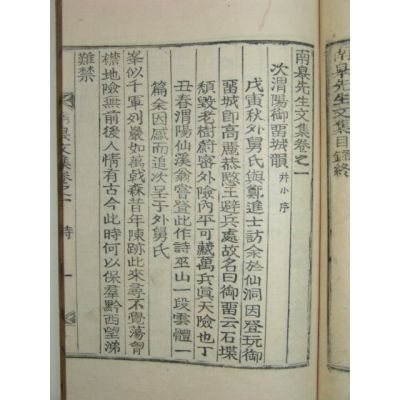 南皐先生文集目錄終
南皐先生文集卷之一
次渭陽御畱城韻 幷小序
戊寅秋外舅氏與鄭進士訪余於仙洞因登玩御
畱城卽高麗恭愍王避兵處故名曰御畱云石堞
頹毀老樹蔚密外險內平可藏萬兵眞天險也丁
丑春渭陽仙溪翁嘗登此作詩巫山一段雲體一
篇余因感而追次呈于外舅氏
峯似千軍列巖如萬戟森昔年陳跡此來尋不覺蕩胷
襟地險無前後人情有古今此時何以保羣黔西望涕
難禁
南皐文集卷之一 詩 一